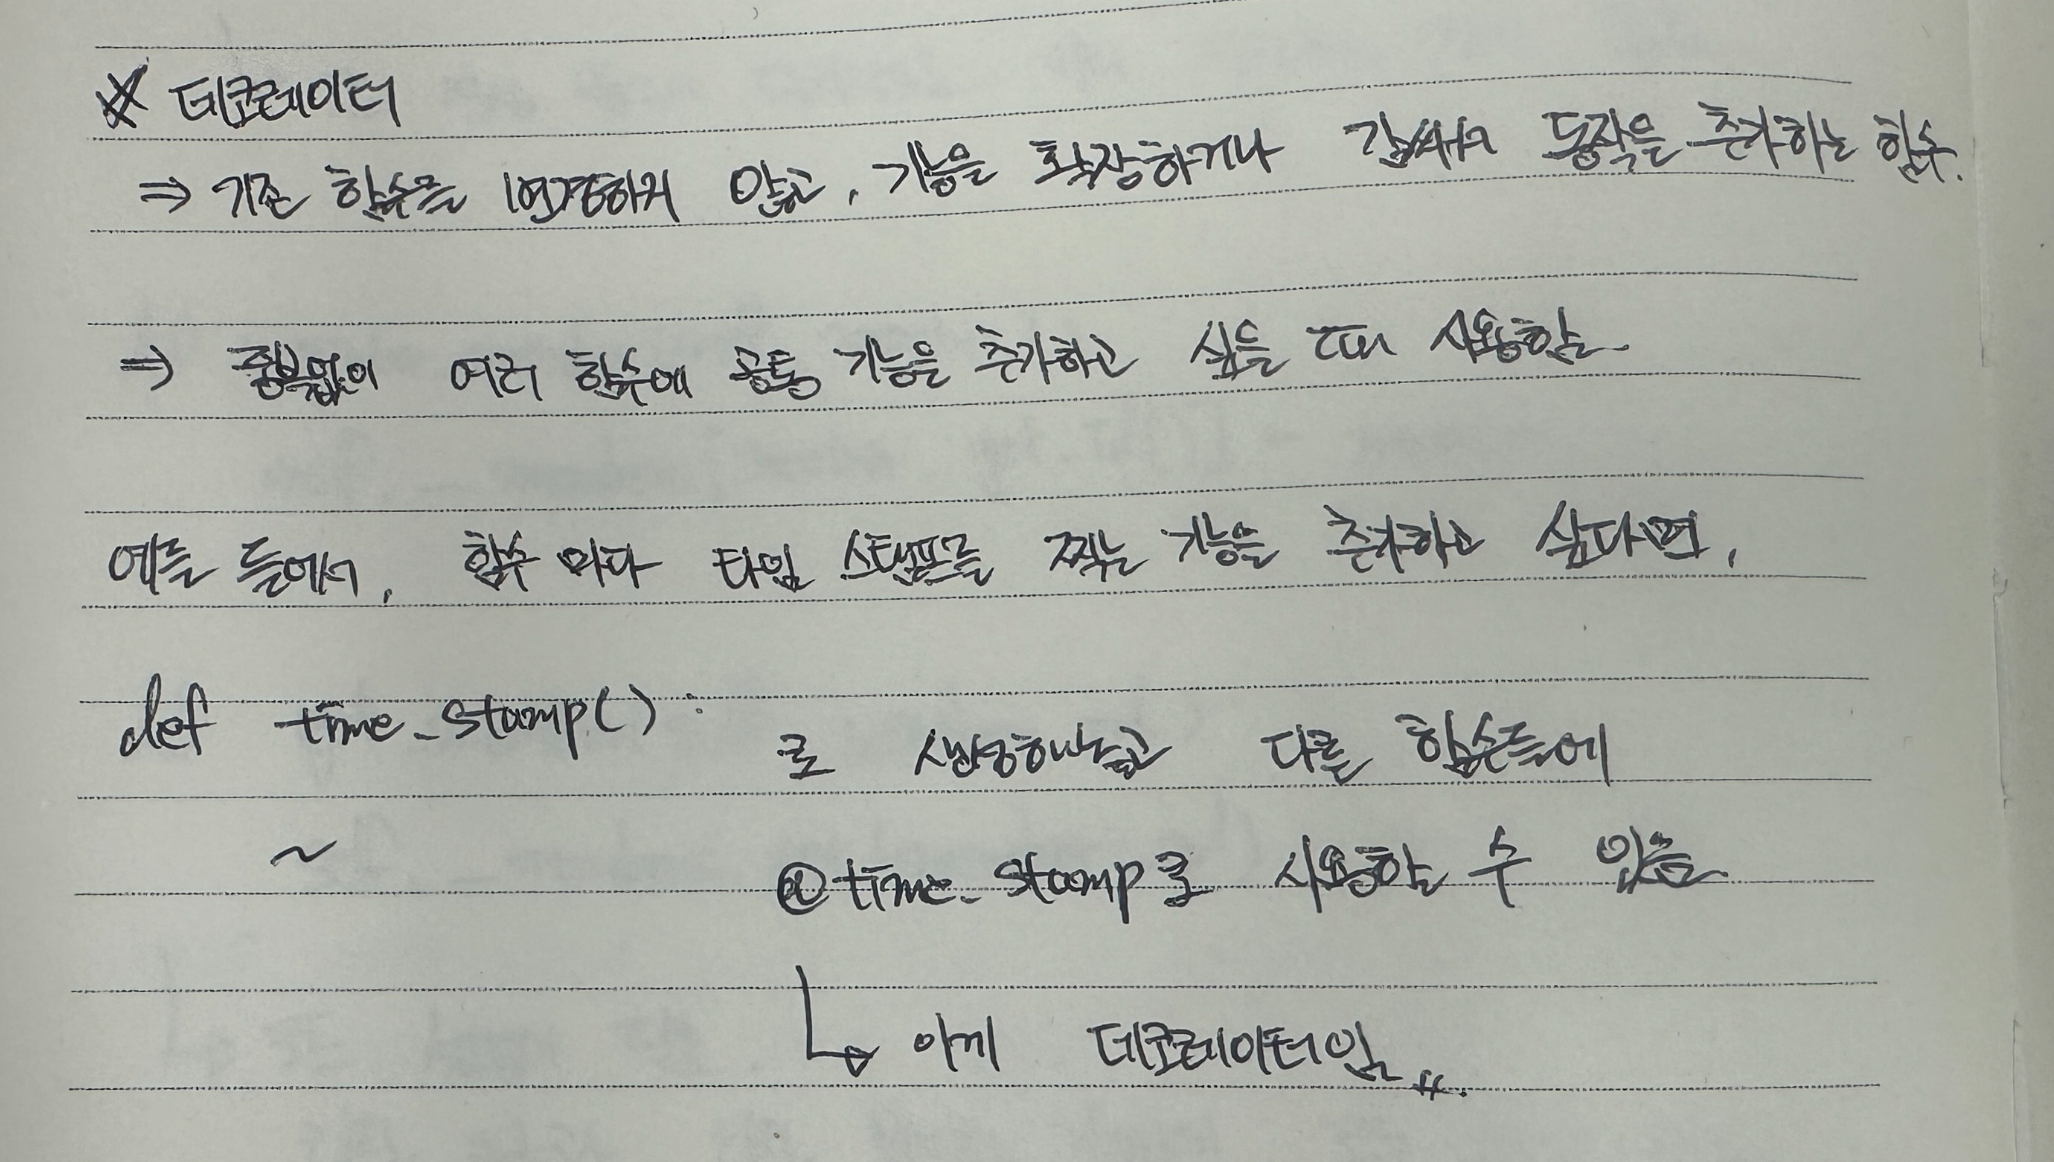 ※ 데코레이터
⇒ 기존 함수를 변경하지 않고, 기능을 확장하거나 감싸서 동작을 추가하는 함수.
⇒ 중복없이 여러 함수에 공통 기능을 추가하고 싶을 때 사용함
예를 들어서, 함수 마다 타임 스탬프를 찍는 기능을 추가하고 싶다면,
def time_stamp() : 로 생성해놓고 다른 함수들에
~ @time_stamp로 사용할 수 있음
↳ 이게 데코레이터임